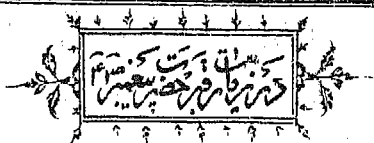 در زیارت قبر حضرت پیغمبر